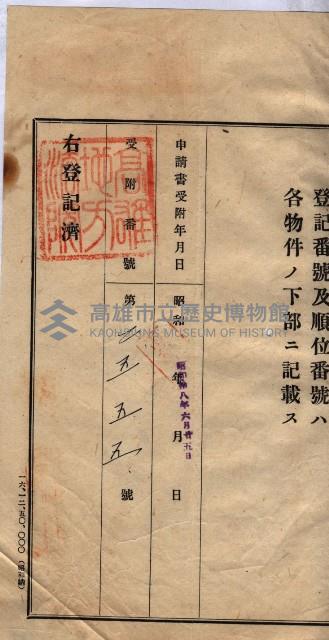 登記番號及順位番號ハ
各物件ノ下部ニ記載ス
申請書受附年月日 昭和 年 月 日
昭和八年六月廿五日
受附番號 第 五五五 號
右登記濟
高雄
地方
高雄市立歷史博物館
KAOHSIUNG MUSEUM OF HISTORY